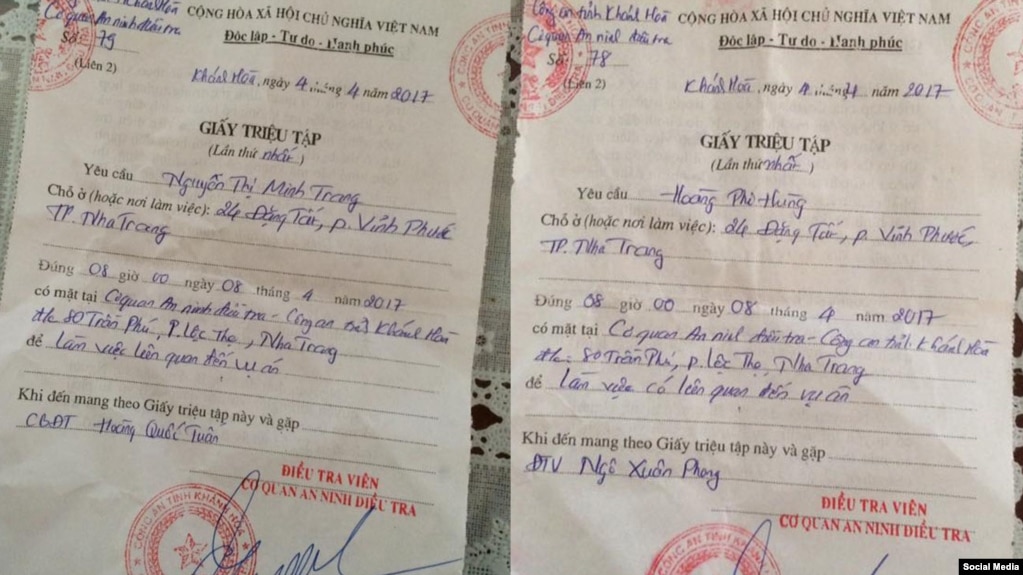 Công an tỉnh Khánh Hoà
Cơ quan An ninh điều tra
Số: 79
(Liên 2)
CỘNG HÒA XÃ HỘI CHỦ NGHĨA VIỆT NAM
Độc lập - Tự do - Hạnh phúc
Khánh Hoà, ngày 4 tháng 4 năm 2017
GIẤY TRIỆU TẬP
(Lần thứ nhất)
Yêu cầu Nguyễn Thị Minh Trang
Chỗ ở (hoặc nơi làm việc): 24 Đặng Tất, p. Vĩnh Phước
TP. Nha Trang
Đúng 08 giờ 00 ngày 08 tháng 4 năm 2017
có mặt tại Cơ quan An ninh điều tra - Công an tỉnh Khánh Hoà
đ/c 80 Trần Phú, P. Lộc Thọ, Nha Trang
để làm việc liên quan đến vụ án
Khi đến mang theo Giấy triệu tập này và gặp
CBĐT Hoàng Quốc Tuân
ĐIỀU TRA VIÊN
CƠ QUAN AN NINH ĐIỀU TRA
CÔNG AN TỈNH KHÁNH HÒA
Công an tỉnh Khánh Hoà
Cơ quan An ninh điều tra
Số: 78
(Liên 2)
CỘNG HÒA XÃ HỘI CHỦ NGHĨA VIỆT NAM
Độc lập - Tự do - Hạnh phúc
Khánh Hoà, ngày 4 tháng 4 năm 2017
GIẤY TRIỆU TẬP
(Lần thứ nhất)
Yêu cầu Hoàng Phò Hưng
Chỗ ở (hoặc nơi làm việc): 24 Đặng Tất, p. Vĩnh Phước,
TP. Nha Trang
Đúng 08 giờ 00 ngày 08 tháng 4 năm 2017
có mặt tại Cơ quan An ninh điều tra - Công an tỉnh Khánh Hoà
đ/c: 80 Trần Phú, p. Lộc Thọ, Nha Trang
để làm việc có liên quan đến vụ án
Khi đến mang theo Giấy triệu tập này và gặp
ĐTV Ngô Xuân Phong
ĐIỀU TRA VIÊN
CƠ QUAN AN NINH ĐIỀU TRA
CÔNG AN TỈNH KHÁNH HÒA
Social Media